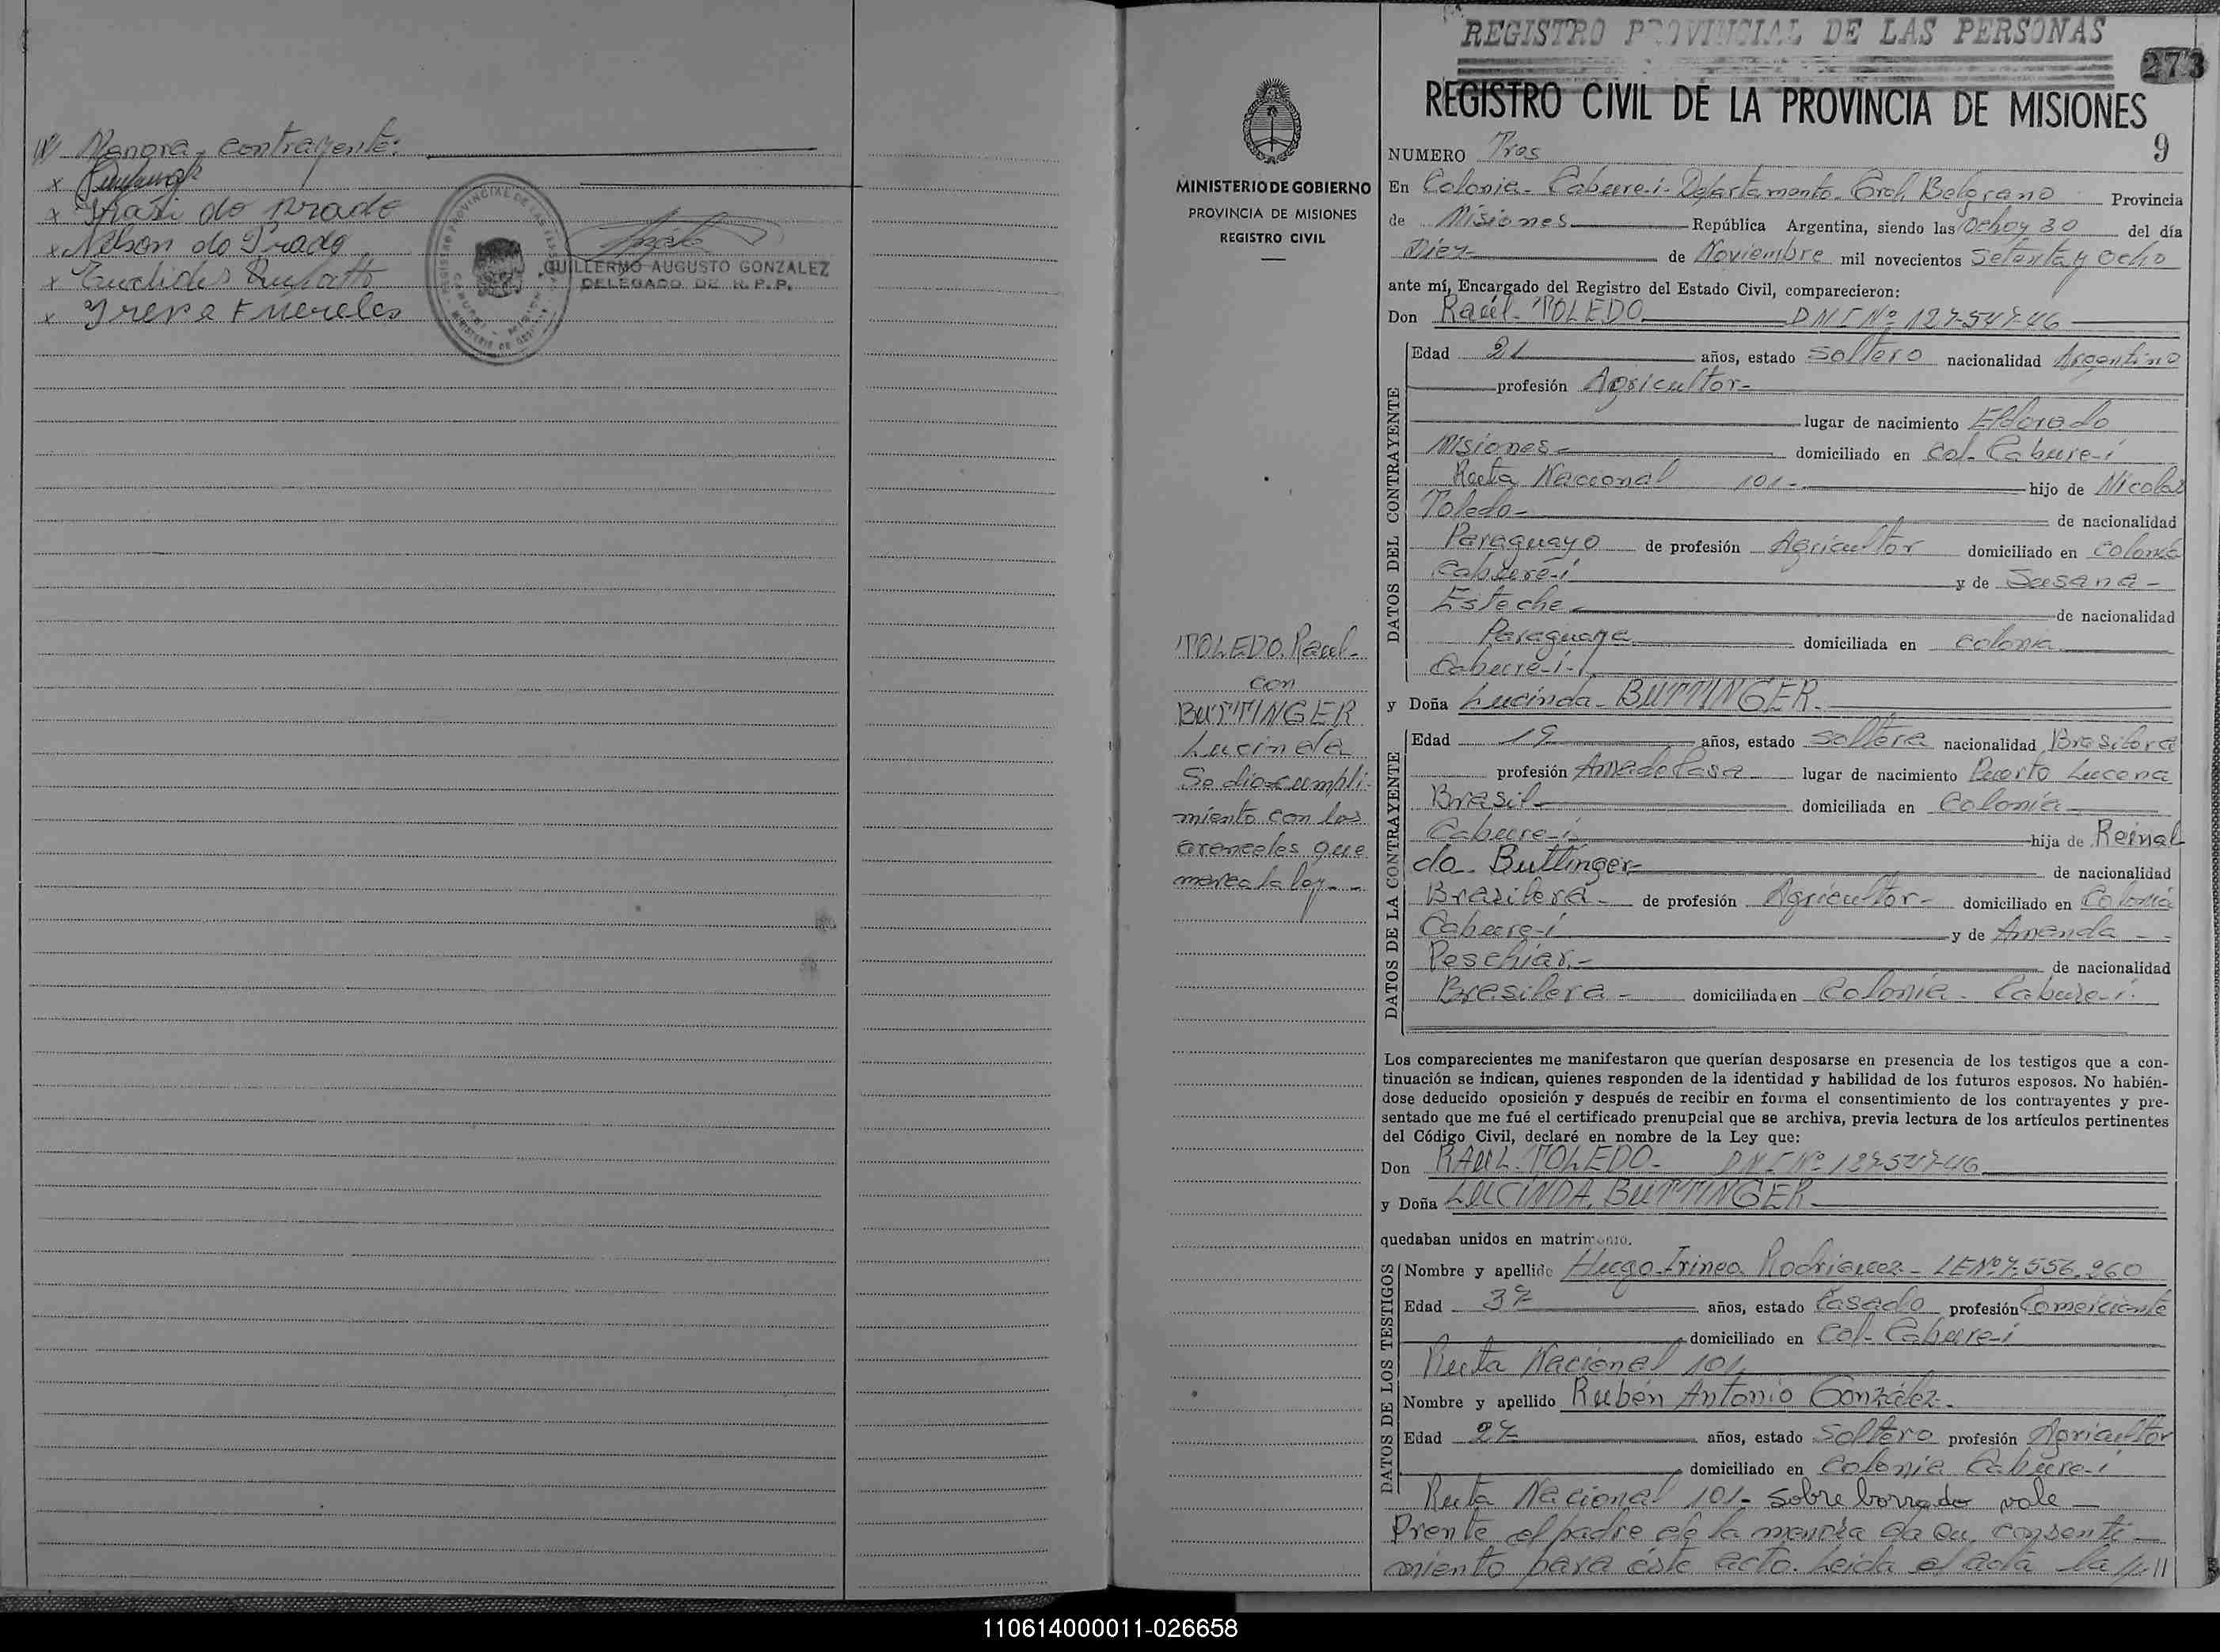 Menora, contrayente:
x
x do prado
x Nelson do Prado
x Euclides
x Irene
GUILLERMO AUGUSTO GONZALEZ
DELEGADO DE R.P.P.
MINISTERIO DE GOBIERNO
PROVINCIA DE MISIONES
REGISTRO CIVIL
TOLEDO, Raul-
con
BUTTINGER
Lucinda
Se dio cumpli-
miento con los
aranceles que
marca la ley - -
REGISTRO PROVINCIAL DE LAS PERSONAS
273
REGISTRO CIVIL DE LA PROVINCIA DE MISIONES
9
NUMERO Tres
En Colonia - Cabure-í - Departamento - Gral Belgrano Provincia
de Misiones República Argentina, siendo las Ocho y 30 del día
Diez de Noviembre mil novecientos Setenta y Ocho
ante mí, Encargado del Registro del Estado Civil, comparecieron:
Don Raúl - TOLEDO DNI Nº 12754746
DATOS DEL CONTRAYENTE
Edad 21 años, estado Soltero nacionalidad Argentino
profesión Agricultor-
lugar de nacimiento Eldorado
Misiones- domiciliado en Col. Cabure-í
Ruta Nacional 101- hijo de Nicolas
Toledo- de nacionalidad
Paraguayo de profesión Agricultor domiciliado en Colonia
Cabure-í y de Susana -
Esteche- de nacionalidad
Paraguaya domiciliada en Colonia
Cabure-í-
y Doña Lucinda - BUTTINGER-
DATOS DE LA CONTRAYENTE
Edad 19 años, estado Soltera nacionalidad Brasilera
profesión Ama de Casa lugar de nacimiento Puerto Lucena
Brasil- domiciliada en Colonia
Cabure-í hija de Reinal
do Buttinger- de nacionalidad
Brasilera - de profesión Agricultor - domiciliado en Colonia
Cabure-í y de Amanda - -
Peschiar.- de nacionalidad
Brasilera - domiciliada en Colonia - Cabure-í.
Los comparecientes me manifestaron que querían desposarse en presencia de los testigos que a con-
tinuación se indican, quienes responden de la identidad y habilidad de los futuros esposos. No habién-
dose deducido oposición y después de recibir en forma el consentimiento de los contrayentes y pre-
sentado que me fué el certificado prenupcial que se archiva, previa lectura de los artículos pertinentes
del Código Civil, declaré en nombre de la Ley que:
Don RAUL. TOLEDO- DNI Nº 12754746
y Doña LUCINDA, BUTTINGER
quedaban unidos en matrimonio.
DATOS DE LOS TESTIGOS
Nombre y apellido Hugo Irineo Rodriguez - LE Nº 7.556.960
Edad 37 años, estado Casado profesión Comerciante
domiciliado en Col. Cabure-í
Ruta Nacional 101
Nombre y apellido Rubén Antonio González-
Edad 27 años, estado Soltero profesión Agricultor
domiciliado en Colonia Cabure-í
Ruta Nacional 101- Sobre borrado vale -
Prente el padre de la menora da su consenti-
miento para éste acto. Leída el acta la
110614000011-026658